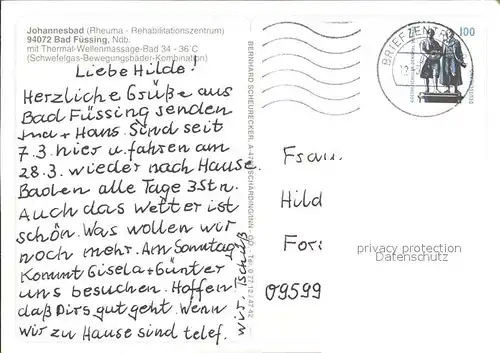 Johannesbad (Rheuma - Rehabilitationszentrum)
94072 Bad Füssing, Ndb.
mit Thermal-Wellenmassage-Bad 34 - 36°C
(Schwefelgas-Bewegungsbäder-Kombination)
Liebe Hilde!
Herzliche Grüße aus
Bad Füssing senden
Irma + Hans. Sind seit
7.3. hier u. fahren am
28.3. wieder nach Hause.
Baden alle Tage 3 Stn.
Auch das Wetter ist
schön. Was wollen wir
noch mehr. Am Sonntag
kommt Gisela + Günter
uns besuchen. Hoffen
daß Dirs gut geht. Wenn
wir zu Hause sind telef.
wir. Tschüß
BERNHARD SCHEURECKER, SCHÄRDING/INN
BRIEFZENTR
100
Frau
Hild
For
privacy protection
Datenschutz
09599